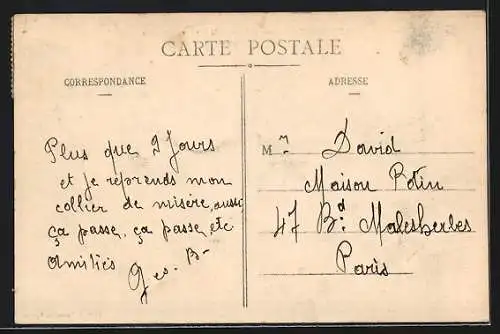 CARTE POSTALE
CORRESPONDANCE
ADRESSE
Plus que 2 Jours
et je reprends mon
collier de misère, aussi
ça passe, ça passe, etc
Amitiés
Geo. B-
M m David
Maison Potin
47 Bd. Malesherbes
Paris